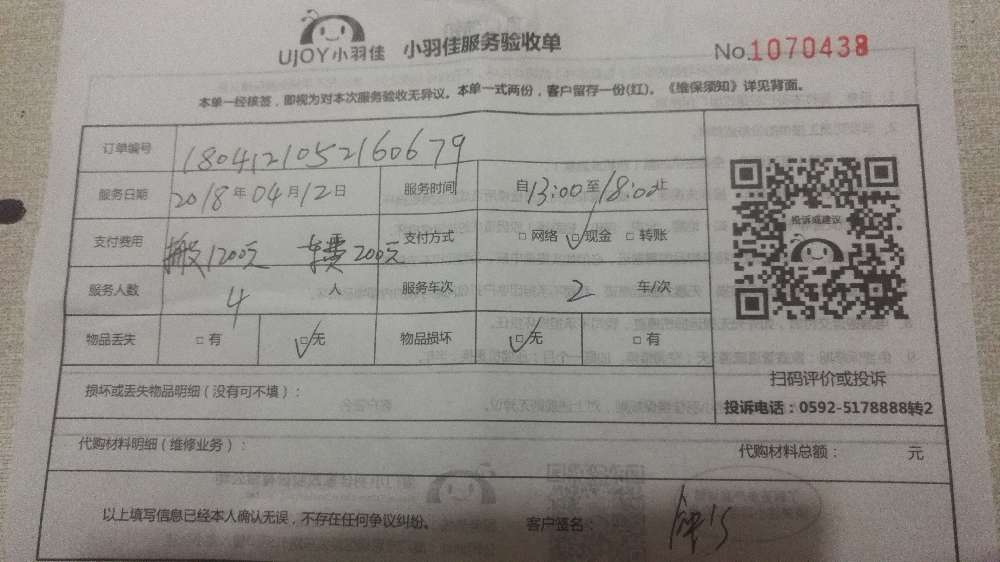 UJOY小羽佳 小羽佳服务验收单 No.1070438
本单一经核签，即视为对本次服务验收无异议。本单一式两份，客户留存一份(红)。《维保须知》详见背面。
订单编号 180412105216067​9
服务日期 2018年04月12日 服务时间 自13:00至18:00止
支付费用 搬1200元 车费200元 支付方式 □网络 ☑现金 □转账
服务人数 4人 服务车次 2 车/次
物品丢失 □有 ☑无 物品损坏 ☑无 □有
损坏或丢失物品明细（没有可不填）：
投诉或建议
扫码评价或投诉
投诉电话：0592-5178888转2
代购材料明细（维修业务）： 代购材料总额： 元
以上填写信息已经本人确认无误，不存在任何争议纠纷。 客户签名：